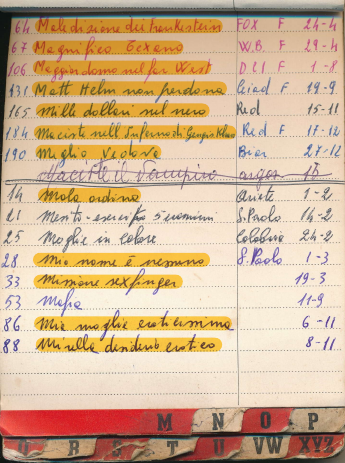 64 Maledizione dei Frankestein FOX F 24-4
67 Magnifico Texano W.B. F 29-4
106 Maggiordomo nel far West D E I F 1-8
131 Matt Helm non perdona Ceiad F 19-9
165 Mille dollari nel nero Red 15-11
184 Maciste nell'Inferno di Gengis Khan Red F 17-12
190 Meglio Vedova Bior 27-12
Maciste il Vampiro 17
14 Mala ordina Ariete 1-2
21 5 uomini S.Paolo 14-2
25 Moglie in calore 24-2
28 Mio nome è nessuno S.Paolo 1-3
33 Missione sexfinger 19-3
53 Mafia 11-9
86 Mia moglie eroticissima 6-11
88 Mirella desiderio erotico 8-11
M N O P
Q R S T U VW XYZ